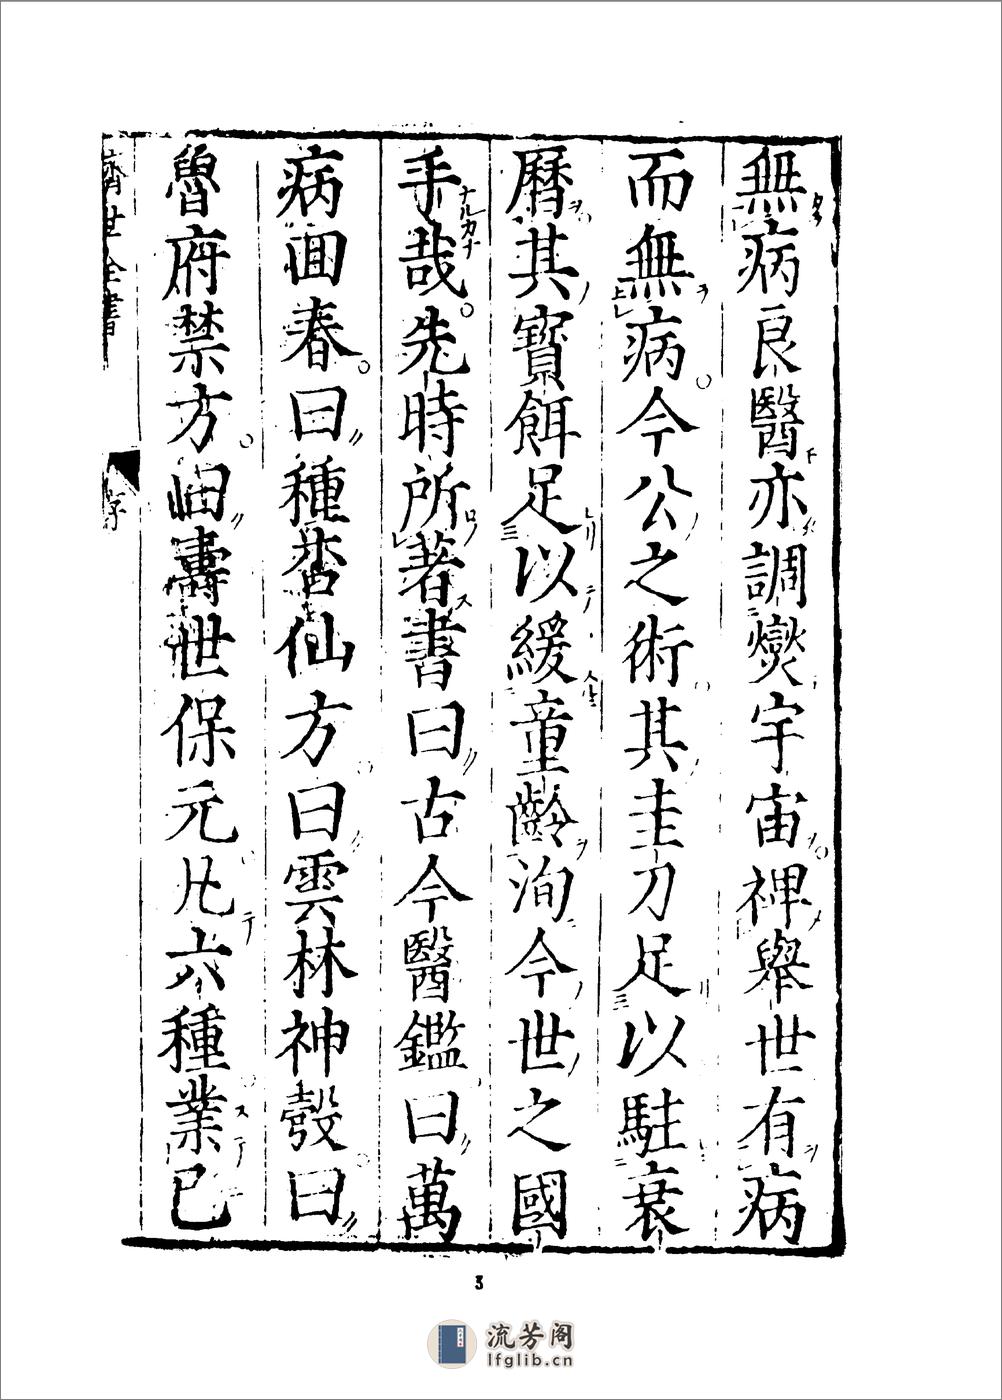 無病良醫亦調燮宇宙禆舉世有病
而無病今公之術其圭刀足以駐衰
曆其寶餌足以緩童齡洵今世之國
手哉先時所著書曰古今醫鑑曰萬
病囬春曰種杏仙方曰雲林神彀曰
魯府禁方曰壽世保元凡六種業已
濟世全書
序
3
流芳阁
lfglib.cn